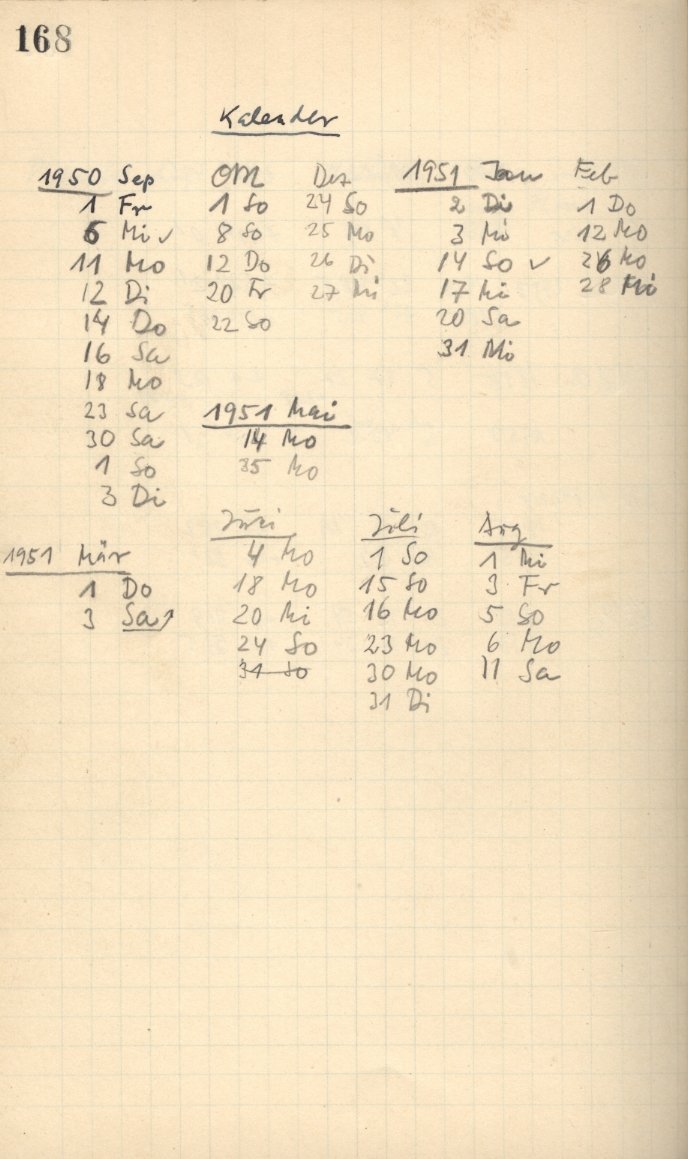 168
Kalender
1950 Sep
1 Fr
6 Mi ✓
11 Mo
12 Di
14 Do
16 Sa
18 Mo
23 Sa
30 Sa
1 So
3 Di
Okt
1 So
8 So
12 Do
20 Fr
22 So
Dez
24 So
25 Mo
26 Di
27 Mi
1951 Jan
2 Di
3 Mi
14 So ✓
17 Mi
20 Sa
31 Mi
Feb
1 Do
12 Mo
26 Mo
28 Mi
1951 Mai
14 Mo
35 Mo
1951 Mär
1 Do
3 Sa
Juni
4 Mo
18 Mo
20 Mi
24 So
31 So
Juli
1 So
15 So
16 Mo
23 Mo
30 Mo
31 Di
Aug
1 Mi
3 Fr
5 So
6 Mo
11 Sa